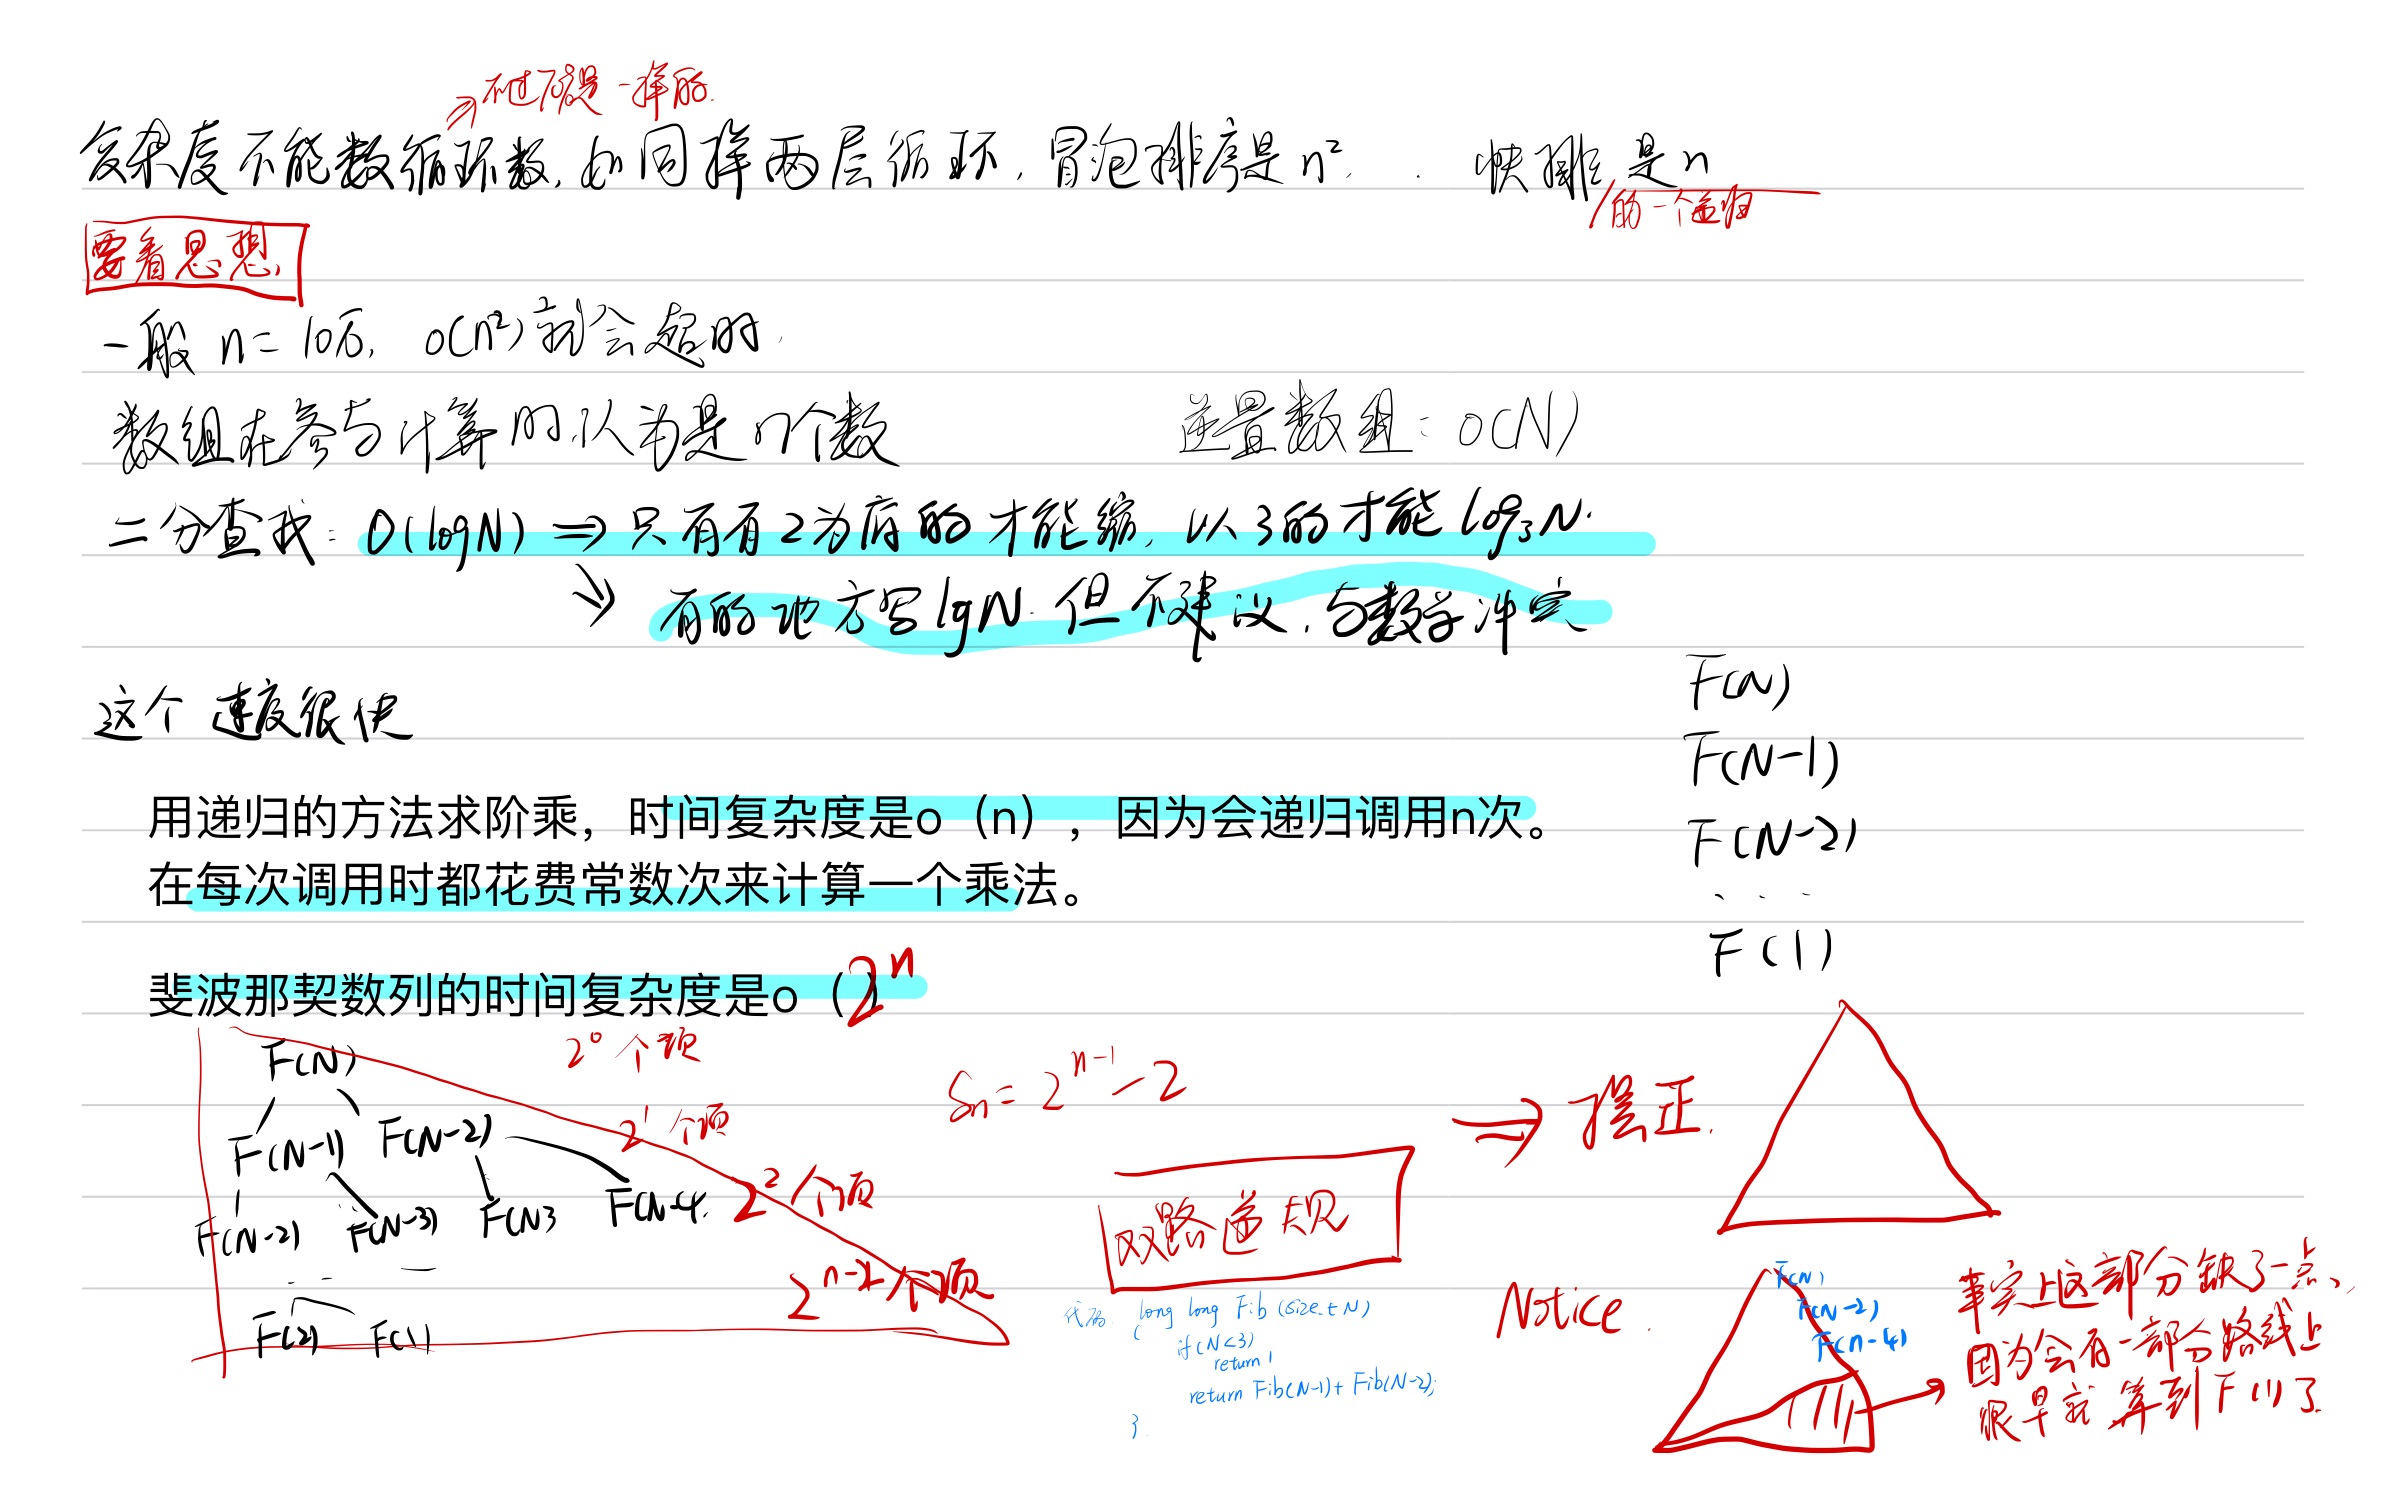 不过不都是一样的.
复杂度不能数循环数,如同样两层循环,冒泡排序是n²,. 快排是n
的一个递归
要看思想
一般 n=10万, o(n²)就会超时.
数组在参与计算时,认为是n个数 逆置数组: o(N)
二分查找: O(logN) ⇒ 只有有2为底的才能缩, 以3的才能log₃N.
↘ 有的地方写lgN. 但不建议, 与数学冲突
这个速度很快
F(N)
F(N-1)
用递归的方法求阶乘，时间复杂度是o（n），因为会递归调用n次。
F(N-2)
在每次调用时都花费常数次来计算一个乘法。
....
F(1)
斐波那契数列的时间复杂度是o（2ⁿ）
F(N) 2⁰个项
F(N-1) F(N-2) 2¹个项
Sn = 2ⁿ⁻¹-2 ⇒ 摆正.
F(N-2) F(N-3) F(N3 F(N-4. 2²个项
双路递规
F(2) F(1) 2ⁿ⁻²个项
代码 long long Fib (size_t N)
{
if(N<3)
return 1
return Fib(N-1)+ Fib(N-2);
}
Notice.
F(N)
F(N-2)
F(n-4)
事实上这部分缺了一点,
因为会有一部分路线上
很早就算到F(1)了.